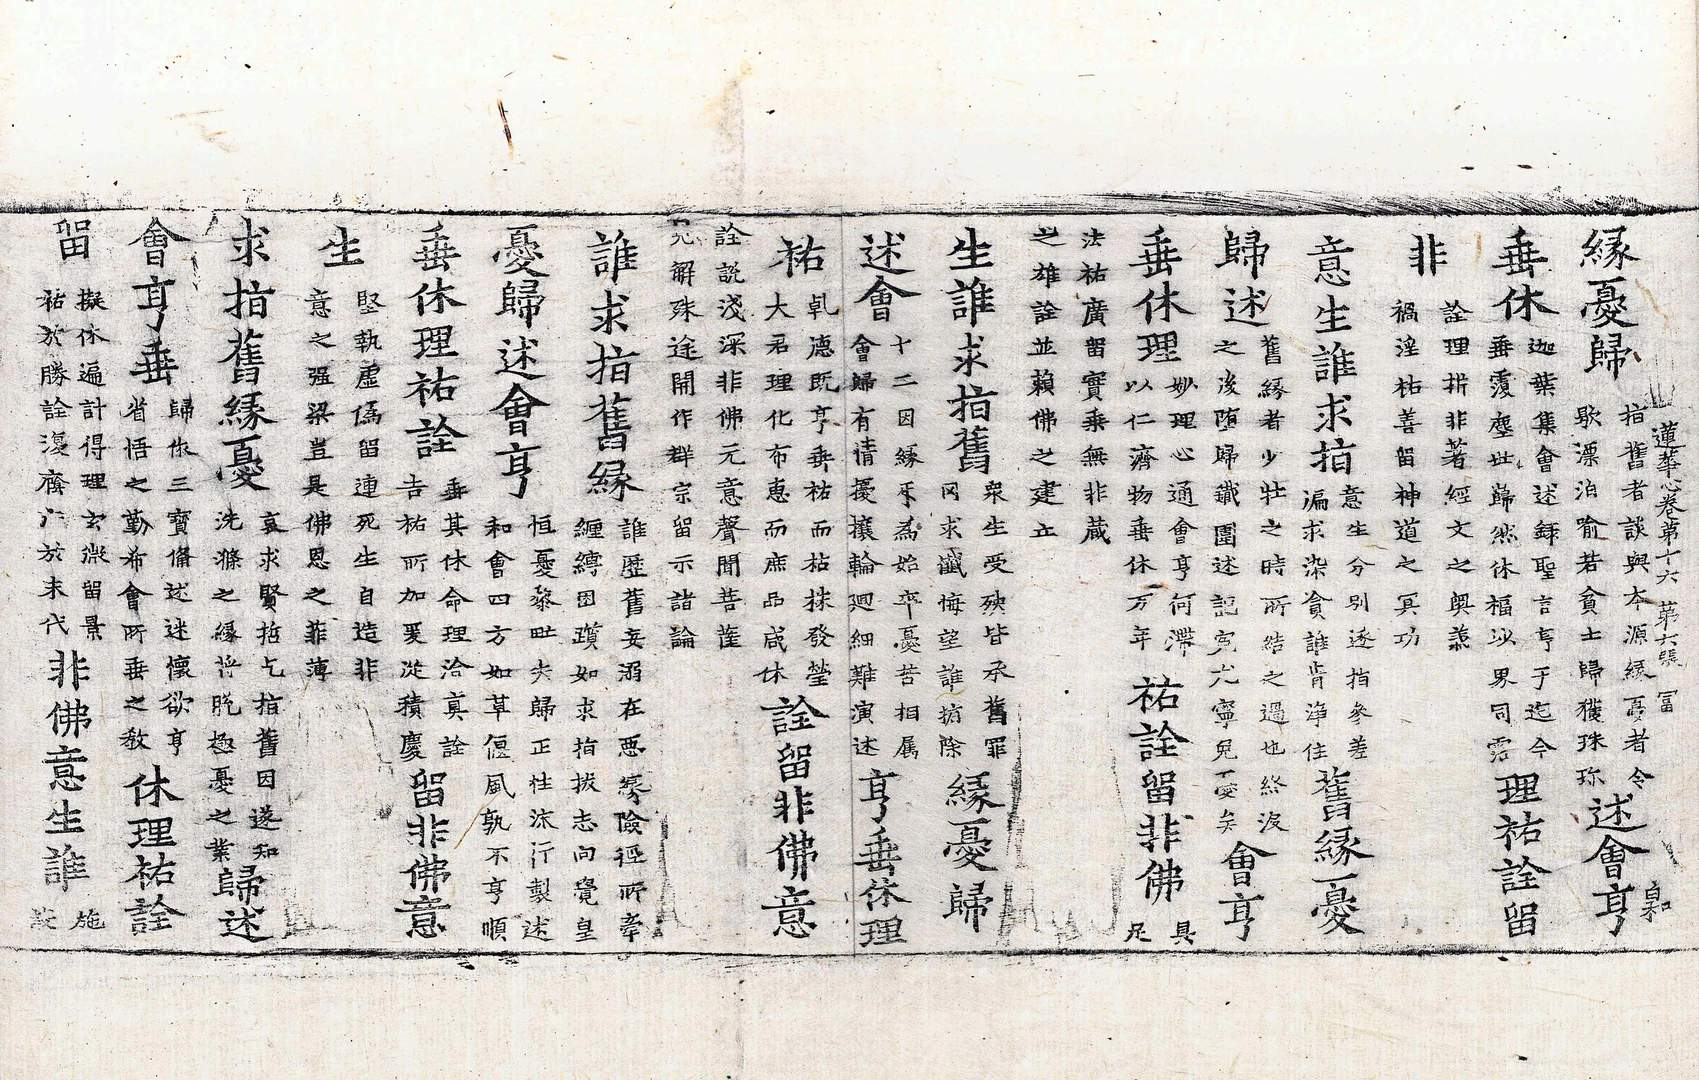 緣憂歸
指舊者談與本源緣憂者令
歇漂泊喻若貧士歸獲珠珎
述會亨
蓮華心卷第十六 第六張 冨
垂休
迦葉集會述録聖言亨于迄今
垂覆塵世歸然休福沙界同霑
理祐詮留
非
詮理折非著經文之奧義
禍淫祐善留神道之冥功
意生誰求指
意生分别逐指參差
遍求染貪誰肯淨住
舊緣憂
歸述
舊緣者少壯之時所結之過也終沒
之後墮歸鐵圍述記寃尤寧免憂矣
會亨
垂休理
妙理心通會亨何滯
以仁濟物垂休万年
祐詮留非佛
具
足
法祐廣留實乗無非蔵
之雄詮並賴佛之建立
生誰求指舊
衆生受殃皆承舊罪
冈求懺悔望誰指除
緣憂歸
述會
十二因緣禾為始卒憂苦相属
會歸有情擾攘輪廻細難演述
亨垂休理
祐
乹德既亨垂祐而枯抹發瑩
大君理化布惠而庶品咸休
詮留非佛意
詮說淺深非佛元意聲聞菩薩
解殊途開作群宗留示諸論
誰求指舊緣
誰歷舊妄溺在惡緣險徑所牽
纏縛因如求指拔志向覺皇
憂歸述會亨
恒憂黎毗夫歸正性沐行製述
和會四方如草偃風孰不亨順
垂休理祐詮
垂其休命理洽真詮
吉祐所加爰從積慶
留非佛意
生
堅執虛偽留連死生自造非
意之强梁豈是佛恩之菲薄
求指舊緣憂
哀求賢哲乞指舊因遂知
洗滌之緣將脫極憂之業
歸述
會亨垂
歸依三寶俻述迷懷欲亨
省悟之勤希會所垂之教
休理祐詮
留
擬休遍計得理玄微留景
祐於勝詮復齊於末代
非佛意生誰
施